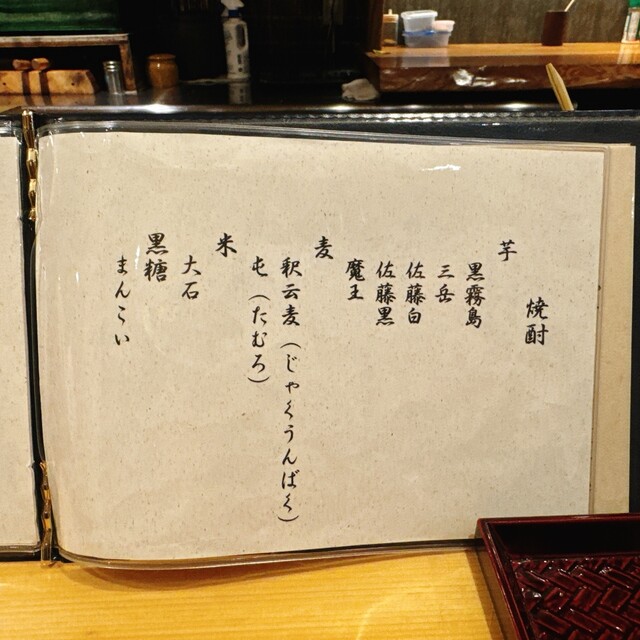 焼酎
芋
黒霧島
三岳
佐藤白
佐藤黒
魔王
麦
釈云麦（じゃくうんばく）
屯（たむろ）
米
大石
黒糖
まんこい